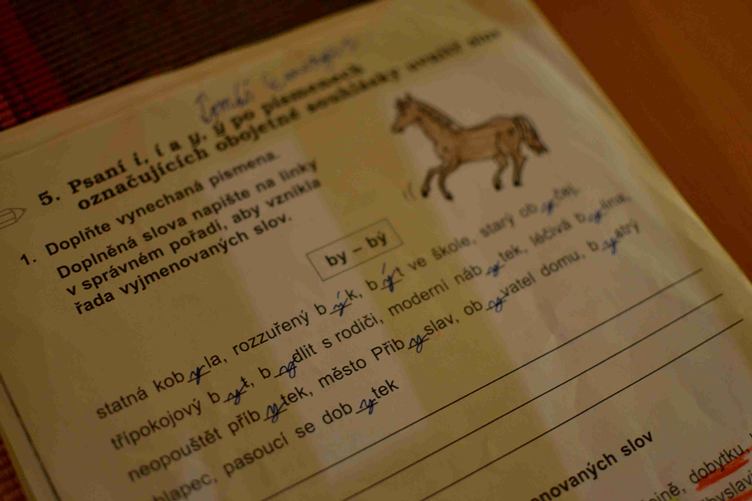 5. Psaní i, í a y, ý po písmenech
označujících obojetné souhlásky uvnitř slov
1. Doplňte vynechaná písmena.
Doplněná slova napište na linky
v správném pořadí, aby vznikla
řada vyjmenovaných slov.
by – bý
statná kobyla, rozzuřený býk, být ve škole, starý obyčej,
třípokojový byt, bydlit s rodiči, moderní nábytek, léčivá bylina,
neopouštět příbytek, město Přibyslav, obyvatel domu, bystrý
chlapec, pasoucí se dobytek
dobytku,